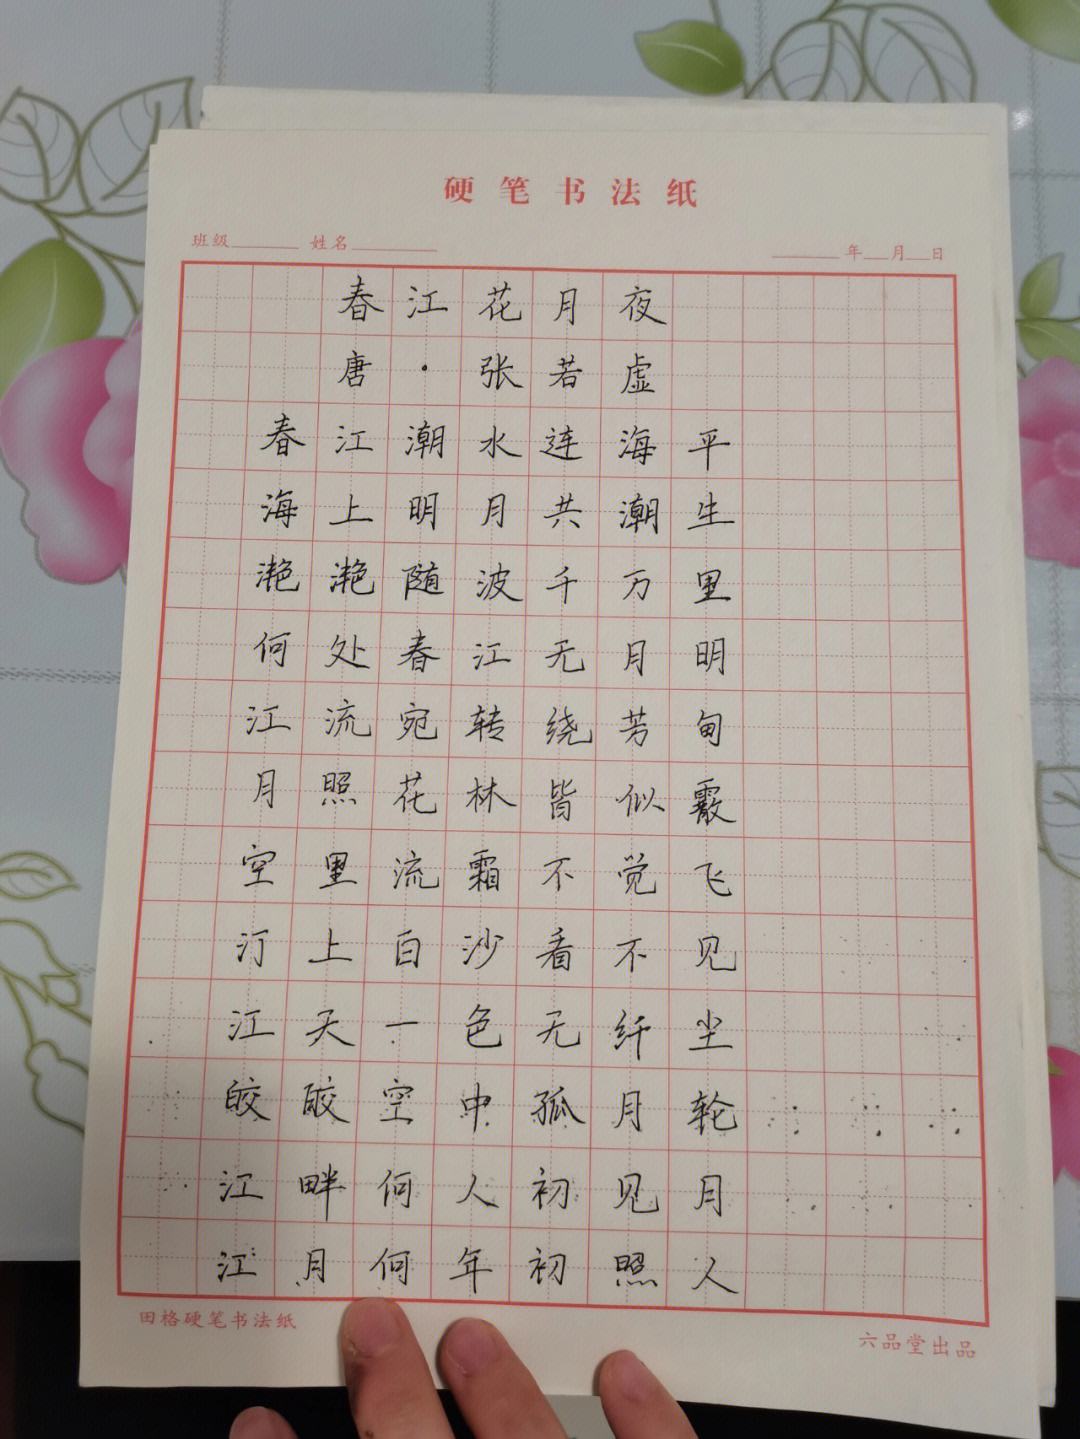 硬笔书法纸
班级 姓名 年 月 日
春江花月夜
唐·张若虚
春江潮水连海平
海上明月共潮生
滟滟随波千万里
何处春江无月明
江流宛转绕芳甸
月照花林皆似霰
空里流霜不觉飞
汀上白沙看不见
江天一色无纤尘
皎皎空中孤月轮
江畔何人初见月
江月何年初照人
田格硬笔书法纸 六品堂出品